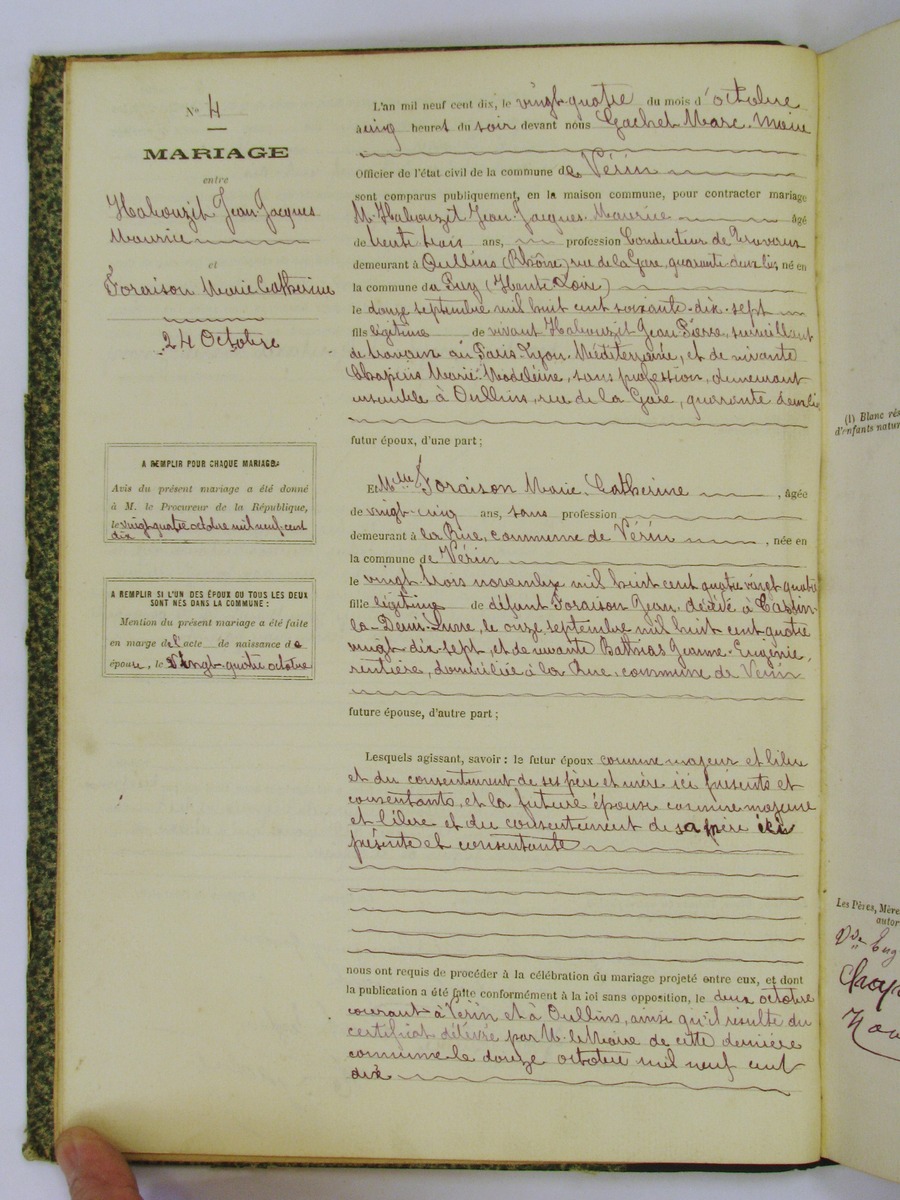 N° 4
MARIAGE
entre
Habouzit Jean-Jacques
Maurice
et
Foraison Marie Catherine
24 Octobre
A REMPLIR POUR CHAQUE MARIAGE
Avis du présent mariage a été donné
à M. le Procureur de la République,
le vingt-quatre octobre mil neuf-cent
dix
A REMPLIR SI L'UN DES ÉPOUX OU TOUS LES DEUX
SONT NÉS DANS LA COMMUNE :
Mention du présent mariage a été faite
en marge de l'acte de naissance de
épouse, le vingt-quatre octobre
L'an mil neuf cent dix, le vingt-quatre du mois d'octobre
à cinq heures du soir devant nous Gachet Marc, Maire
Officier de l'état civil de la commune de Vérin
sont comparus publiquement, en la maison commune, pour contracter mariage
M. Habouzit Jean-Jacques-Maurice âgé
de trente trois ans, profession Conducteur de Travaux
demeurant à Oullins (Rhône) rue de la Gare, quarante deux bis, né en
la commune du Puy (Haute Loire)
le douze septembre mil huit cent soixante-dix-sept
fils légitime de vivant Habouzit Jean-Pierre, surveillant
de travaux au Paris-Lyon-Méditerranée, et de vivante
Chapuis Marie-Madeleine, sans profession, demeurant
ensemble à Oullins, rue de la Gare, quarante deux bis
futur époux, d'une part ;
Et Melle Foraison Marie, Catherine , âgée
de vingt-cinq ans, sans profession
demeurant à la Rue, commune de Vérin , née en
la commune de Vérin
le vingt-trois novembre mil huit cent quatre vingt quatre
fille légitime de défunt Foraison Jean, décédé à
la-Demi-Lune, le onze septembre mil huit cent quatre
vingt dix-sept, et de vivante Jeanne-Eugénie,
rentière, domiciliée à la Rue, commune de Vérin
future épouse, d'autre part ;
Lesquels agissant, savoir : le futur époux comme majeur et libre
et du consentement de ses père et mère ici présents et
consentants, et la future épouse comme majeure
et libre et du consentement de sa mère ici
présente et consentante
nous ont requis de procéder à la célébration du mariage projeté entre eux, et dont
la publication a été faite conformément à la loi sans opposition, le deux octobre
courant à Vérin et à Oullins, ainsi qu'il résulte du
certificat délivré par M. le Maire de cette dernière
commune le douze octobre mil neuf cent
dix
(1) Blanc rés
d'enfants natur
Les Pères, Mère
autor
Vve Eug
Chap